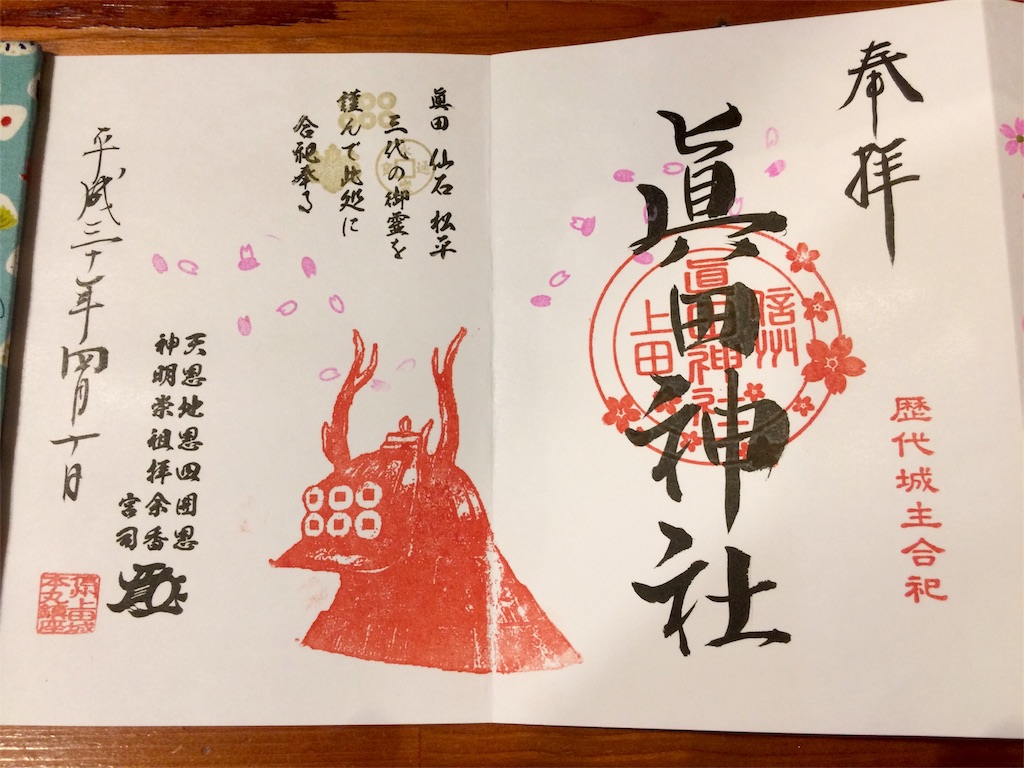 奉拝
歴代城主合祀
眞田神社
信州
眞田神社
上田
眞田 仙石 松平
三代の御霊を
謹んで此処に
合祀奉る
天恩地恩四囲恩
神明崇祖拝余香
宮司
平成三十年四月十日